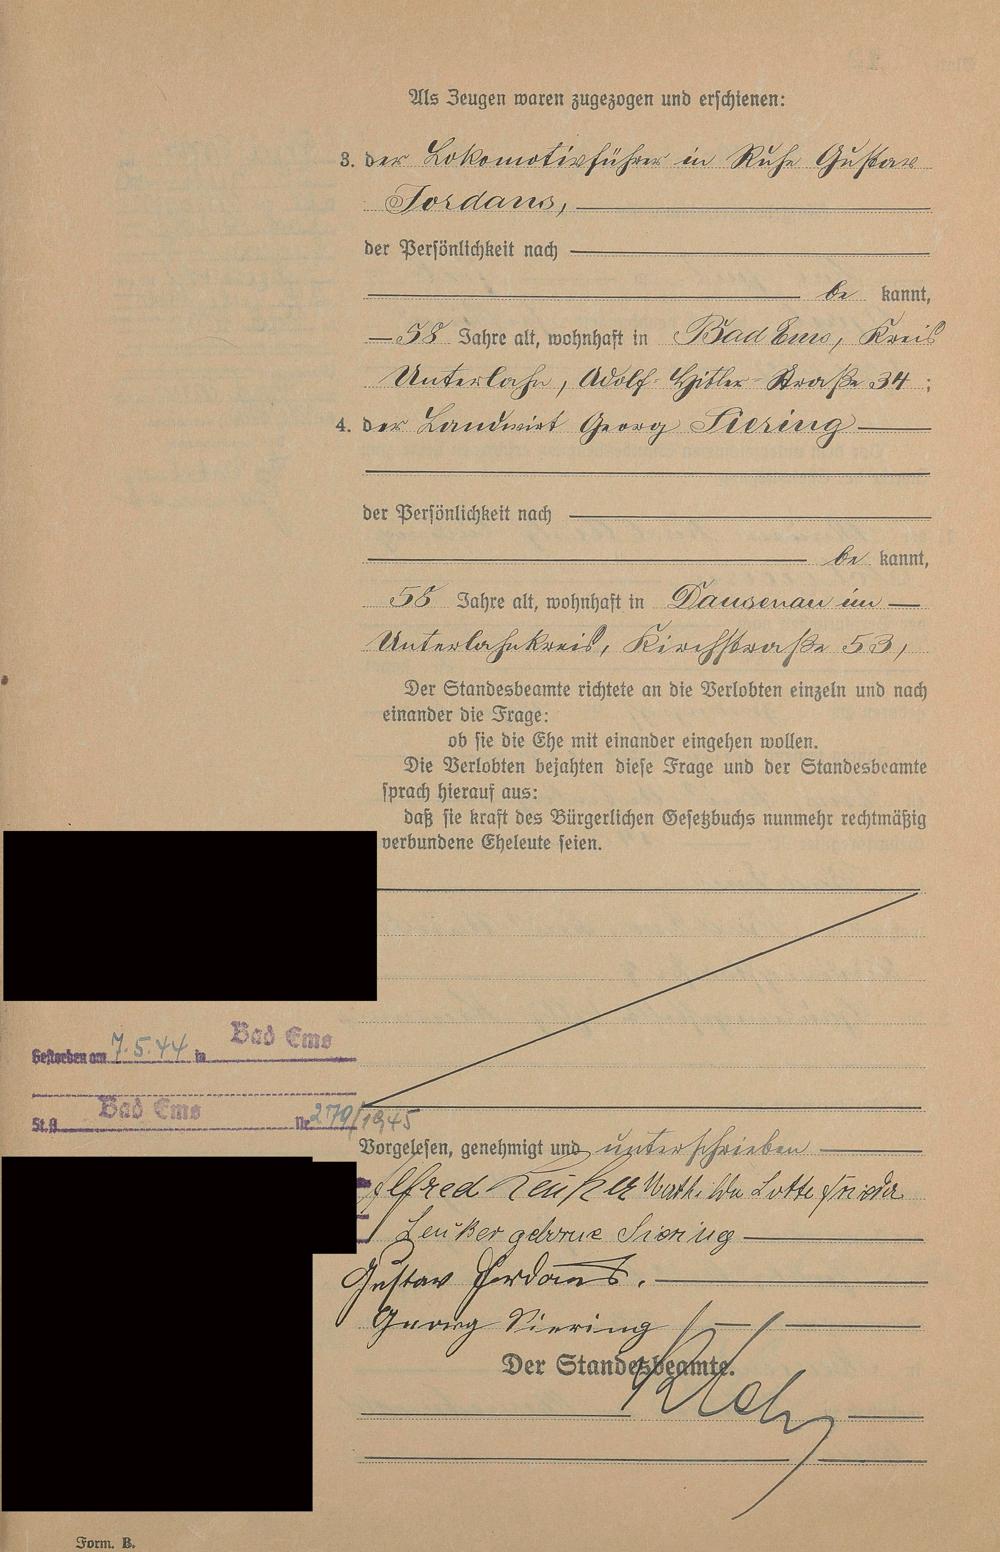 Als Zeugen waren zugezogen und erschienen:
3. der Lokomotivführer in Ruhe Gustav
Jordans,
der Persönlichkeit nach
be kannt,
58 Jahre alt, wohnhaft in Bad Ems, Kreis
Unterlahn, Adolf-Hitler-Straße 34;
4. der Landwirt Georg Siering
der Persönlichkeit nach
be kannt,
58 Jahre alt, wohnhaft in Dausenau im
Unterlahnkreis, Kirchstraße 53,
Der Standesbeamte richtete an die Verlobten einzeln und nach
einander die Frage:
ob sie die Ehe mit einander eingehen wollen.
Die Verlobten bejahten diese Frage und der Standesbeamte
sprach hierauf aus:
daß sie kraft des Bürgerlichen Gesetzbuchs nunmehr rechtmäßig
verbundene Eheleute seien.
Gestorben am 7.5.44 in Bad Ems
St.A. Bad Ems Nr 279/1945
Vorgelesen, genehmigt und unterschrieben
Alfred Leußer Mathilde Lotte Frieda
Leußer geborne Siering
Gustav Jordans.
Georg Siering
Der Standesbeamte.
Form. B.